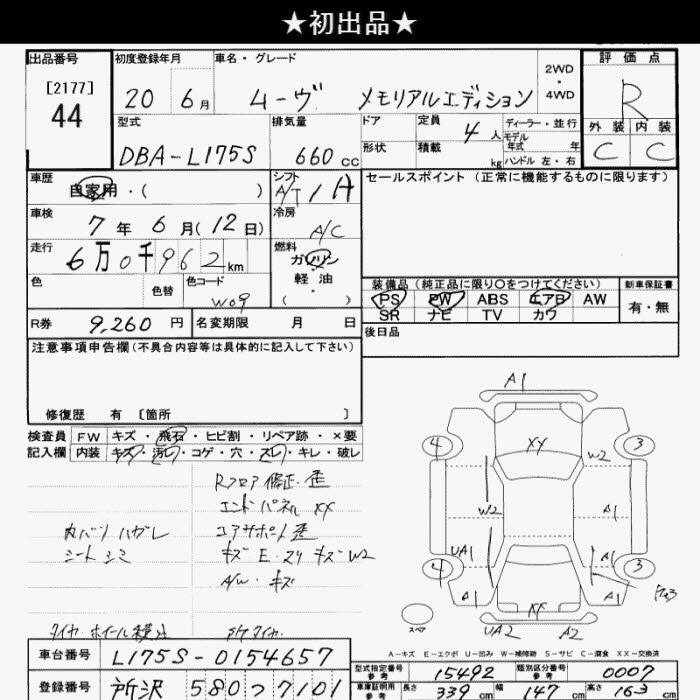 ★初出品★
出品番号
[2177]
44
初度登録年月
20 6月
車名・グレード
ムーヴ メモリアルエディション
2WD
・
4WD
評価点
R
外装 内装
C C
型式
DBA-L175S
排気量
660 cc
ドア
形状
定員
4人
積載
kg
ディーラー・並行
モデル
年式 年
ハンドル 左・右
車歴
自家用・( )
シフト
A/T / A
セールスポイント (正常に機能するものに限ります)
車検
7年 6月(12日)
冷房
A/C
走行
6万0千962km
燃料
ガソリン
軽油
( )
色
色替
色コード
W09
装備品 (純正品に限り○をつけてください)
PS PW ABS エアB AW
SR ナビ TV カワ
新車保証書
有・無
R券 9,260円
名変期限 月 日
後日品
注意事項申告欄 (不具合内容等は具体的に記入して下さい)
修復歴 有 〔箇所 〕
検査員
記入欄
FW キズ・飛石・ヒビ割・リペア跡・×要
内装 キズ・汚レ・コゲ・穴・スレ・キレ・破レ
Rフロア修正・歪
エンドパネル XX
コアサポート歪
キズ E・スリキズ W2
A/W・キズ
内パーツハガレ
シートシミ
A1
XY
4
3
W2
W2
A1
UA1
A1
4
3
A1
A1
XX
UA2
A2
スペア
A-キズ E-エクボ U-凹み W-補修跡 S-サビ C-腐食 XX-交換済
車台番号 L175S-0154657
登録番号 所沢 580 つ 7101
型式指定番号
参考
15492
類別区分番号
参考
0007
車庫証明用
参考
長さ 339 cm
幅 147 cm
高さ 163 cm